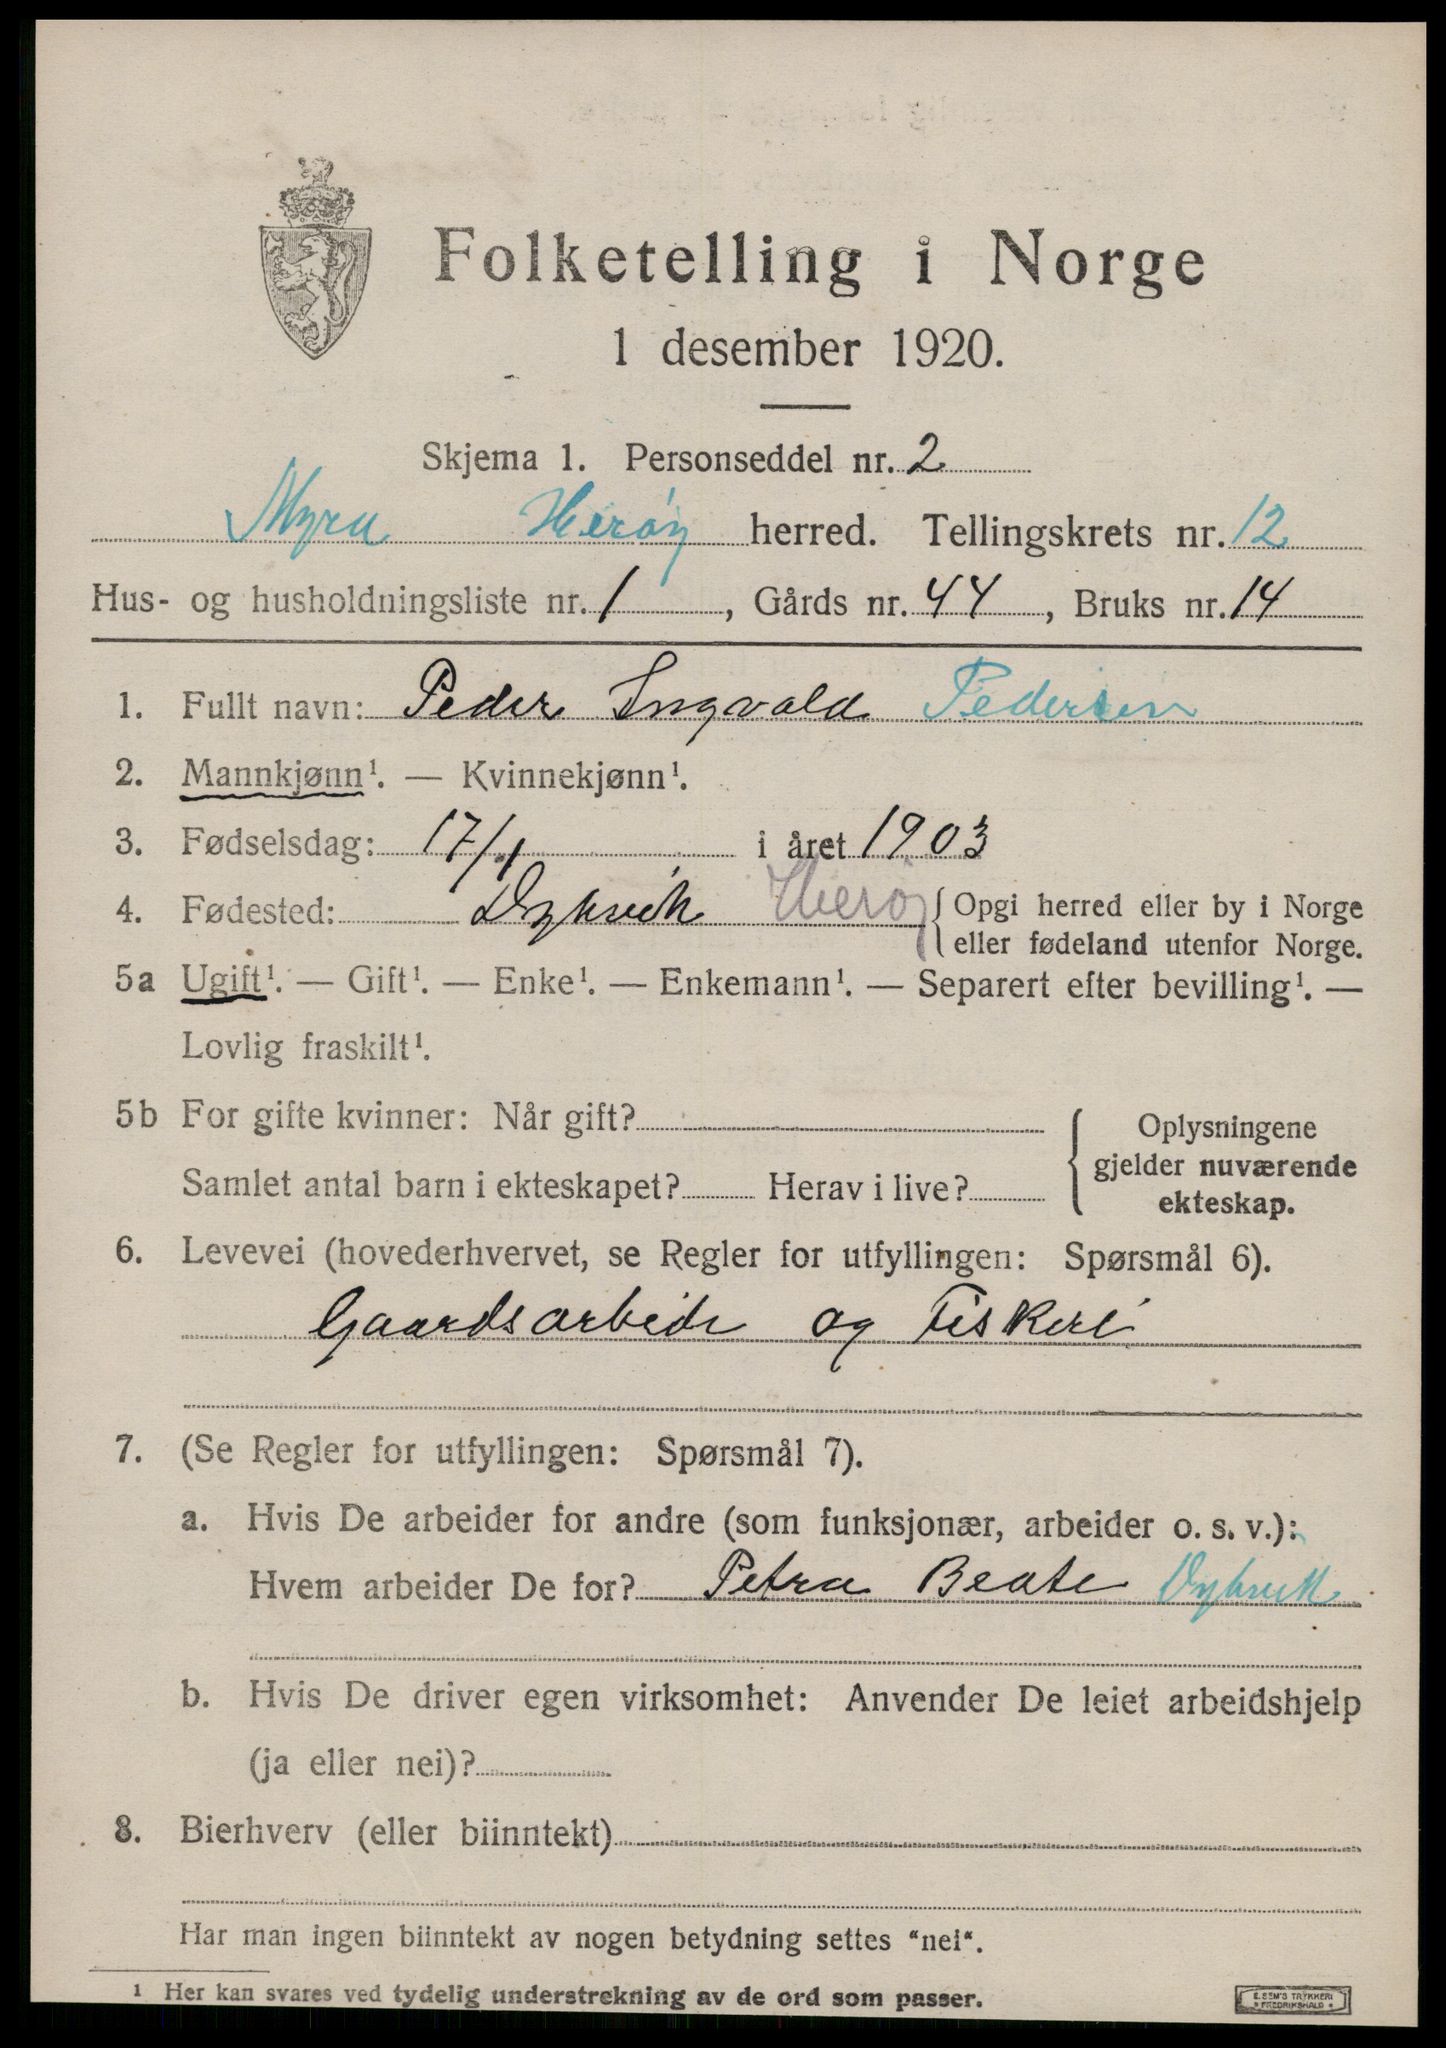 Folketelling i Norge
1 desember 1920.
Skjema 1. Personseddel nr. 2
Myra Herøy herred. Tellingskrets nr. 12
Hus- og husholdningsliste nr. 1, Gårds nr. 44, Bruks nr. 14
1. Fullt navn: Peder Ingvald Pedersen
2. Mannkjønn¹. — Kvinnekjønn¹.
3. Fødselsdag: 17/1 i året 1903
4. Fødested: Dyrkvik Herøy { Opgi herred eller by i Norge
eller fødeland utenfor Norge.
5a Ugift¹. — Gift¹. — Enke¹. — Enkemann¹. — Separert efter bevilling¹. —
Lovlig fraskilt¹.
5b For gifte kvinner: Når gift? { Oplysningene
gjelder nuværende
Samlet antal barn i ekteskapet? Herav i live?
ekteskap.
6. Levevei (hovederhvervet, se Regler for utfyllingen: Spørsmål 6).
Gaardsarbeide og Fiskeri
7. (Se Regler for utfyllingen: Spørsmål 7).
a. Hvis De arbeider for andre (som funksjonær, arbeider o. s. v.):
Hvem arbeider De for? Petra Beate Dybvik
b. Hvis De driver egen virksomhet: Anvender De leiet arbeidshjelp
(ja eller nei)?
8. Bierhverv (eller biinntekt)
Har man ingen biinntekt av nogen betydning settes "nei".
¹ Her kan svares ved tydelig understrekning av de ord som passer.
E. SEM'S TRYKKERI
* FREDRIKSHALD *